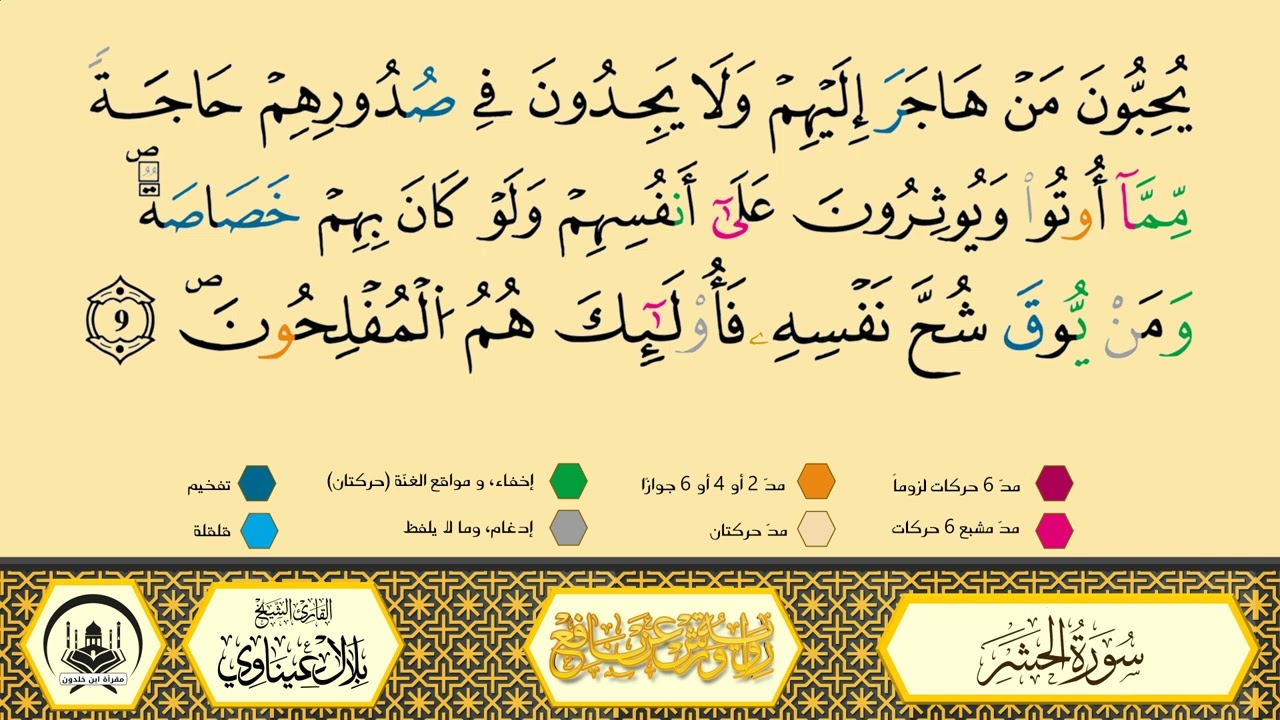 يُحِبُّونَ مَنْ هَاجَرَ إِلَيْهِمْ وَلَا يَجِدُونَ فِي صُدُورِهِمْ حَاجَةً
مِّمَّآ أُوتُواْ وَيُوثِرُونَ عَلَىٰٓ أَنفُسِهِمْ وَلَوْ كَانَ بِهِمْ خَصَاصَةٌ ص
وَمَنْ يُّوقَ شُحَّ نَفْسِهِۦ فَأُوْلَٰٓئِكَ هُمُ اُ۬لْمُفْلِحُونَ ص 9
مدّ 6 حركات لزوماً
مدّ 2 أو 4 أو 6 جوازًا
إخفاء، و مواقع الغنّة (حركتان)
تفخيم
مدّ مشبع 6 حركات
مدّ حركتان
إدغام، وما لا يلفظ
قلقلة
سُورَةُ الحَشْر
رواية ورش عن نافع
القارئ الشيخ
بلال عيناوي
مقرأة ابن خلدون